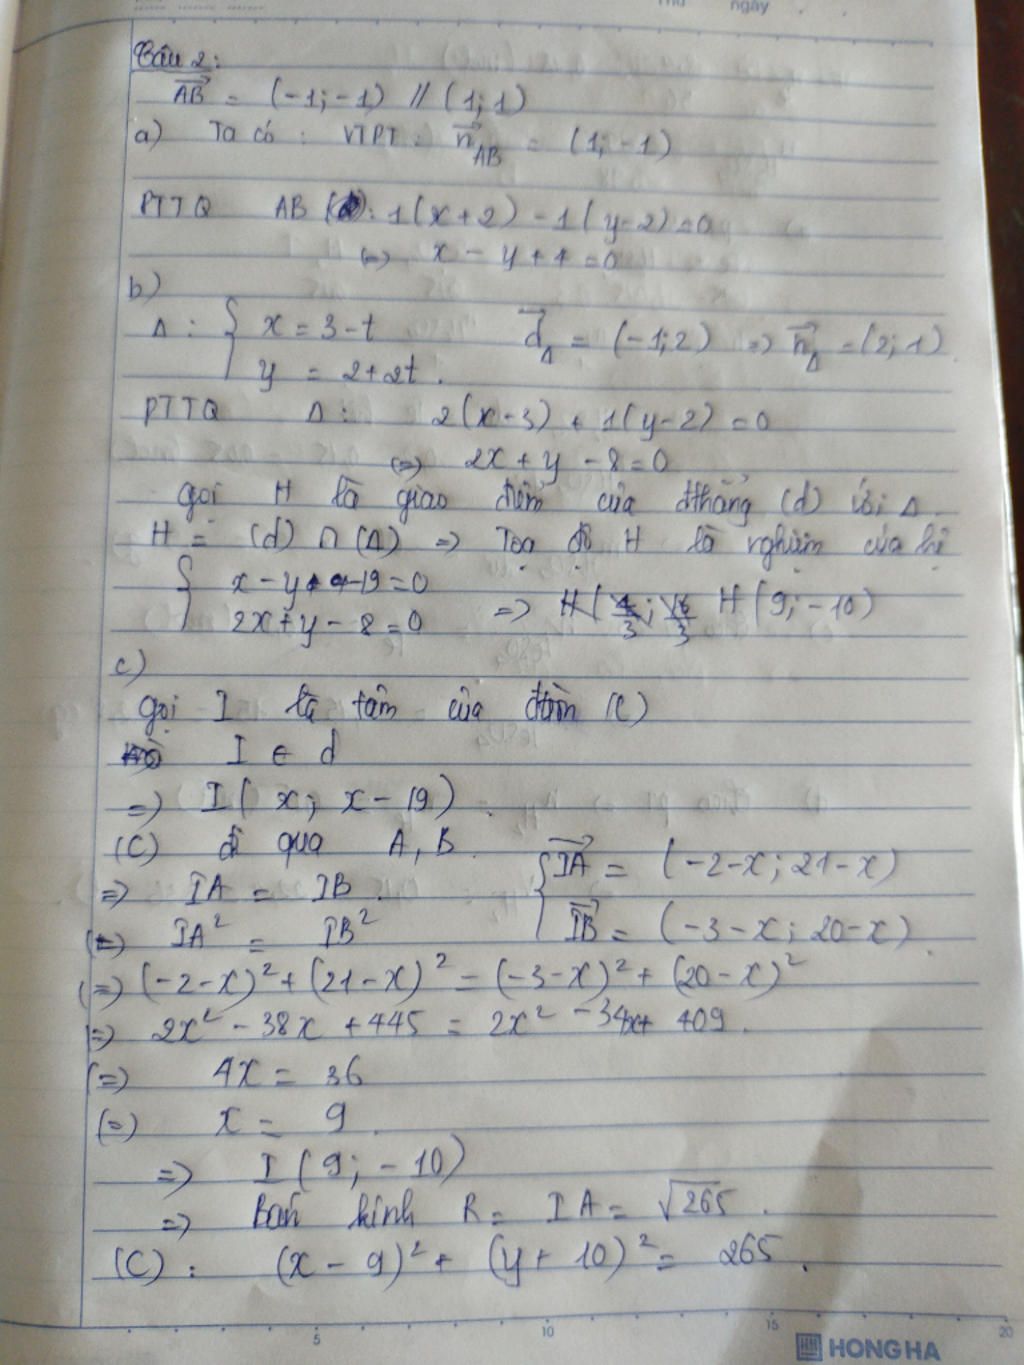 Thứ ngày
Câu 2:
AB = (-1; -1) // (1; 1)
a) Ta có: VTPT: n AB = (1; -1)
PTTQ AB : 1(x+2) - 1(y-2) = 0
(=) x - y + 4 = 0
b)
Δ : { x = 3 - t d Δ = (-1; 2) => n Δ = (2; 1)
y = 2 + 2t.
PTTQ Δ : 2(x-3) + 1(y-2) = 0
(=) 2x + y - 8 = 0
gọi H là giao điểm của đthẳng (d) với Δ.
H = (d) ∩ (Δ) => Toạ độ H là nghiệm của hệ
{ x - y - 19 = 0
2x + y - 8 = 0 => H(9; -10)
c)
gọi I là tâm của đtròn (C)
I ∈ d
=) I( x; x - 19)
(C) đi qua A, B.
=) IA = IB. { IA = (-2-x; 21-x)
(=) IA² = IB² IB = (-3-x; 20-x).
(=) (-2-x)² + (21-x)² = (-3-x)² + (20-x)²
(=) 2x² - 38x + 445 = 2x² - 34x + 409.
(=) 4x = 36
(=) x = 9.
=) I (9; -10)
=) Bán kính R = IA = √265.
(C) : (x - 9)² + (y + 10)² = 265.
5 10 15 20
HONG HA